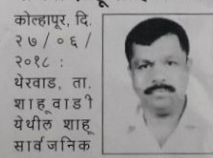 कोल्हापूर, दि.
२७/०६/
२०१८ :
थेरवाड, ता.
शाहूवाडी
येथील शाहू
सार्वजनिक